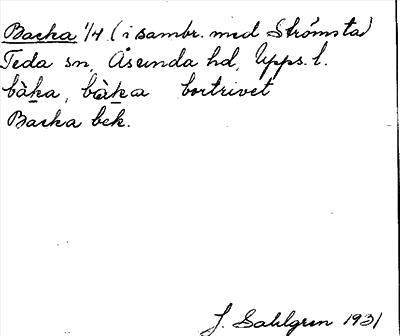 Backa 1/4 (i sambr. med Strömsta)
Teda sn, Åsunda hd, Upps. l.
bàka, bàka bortrivet
Backa bek.
J. Sahlgren 1931